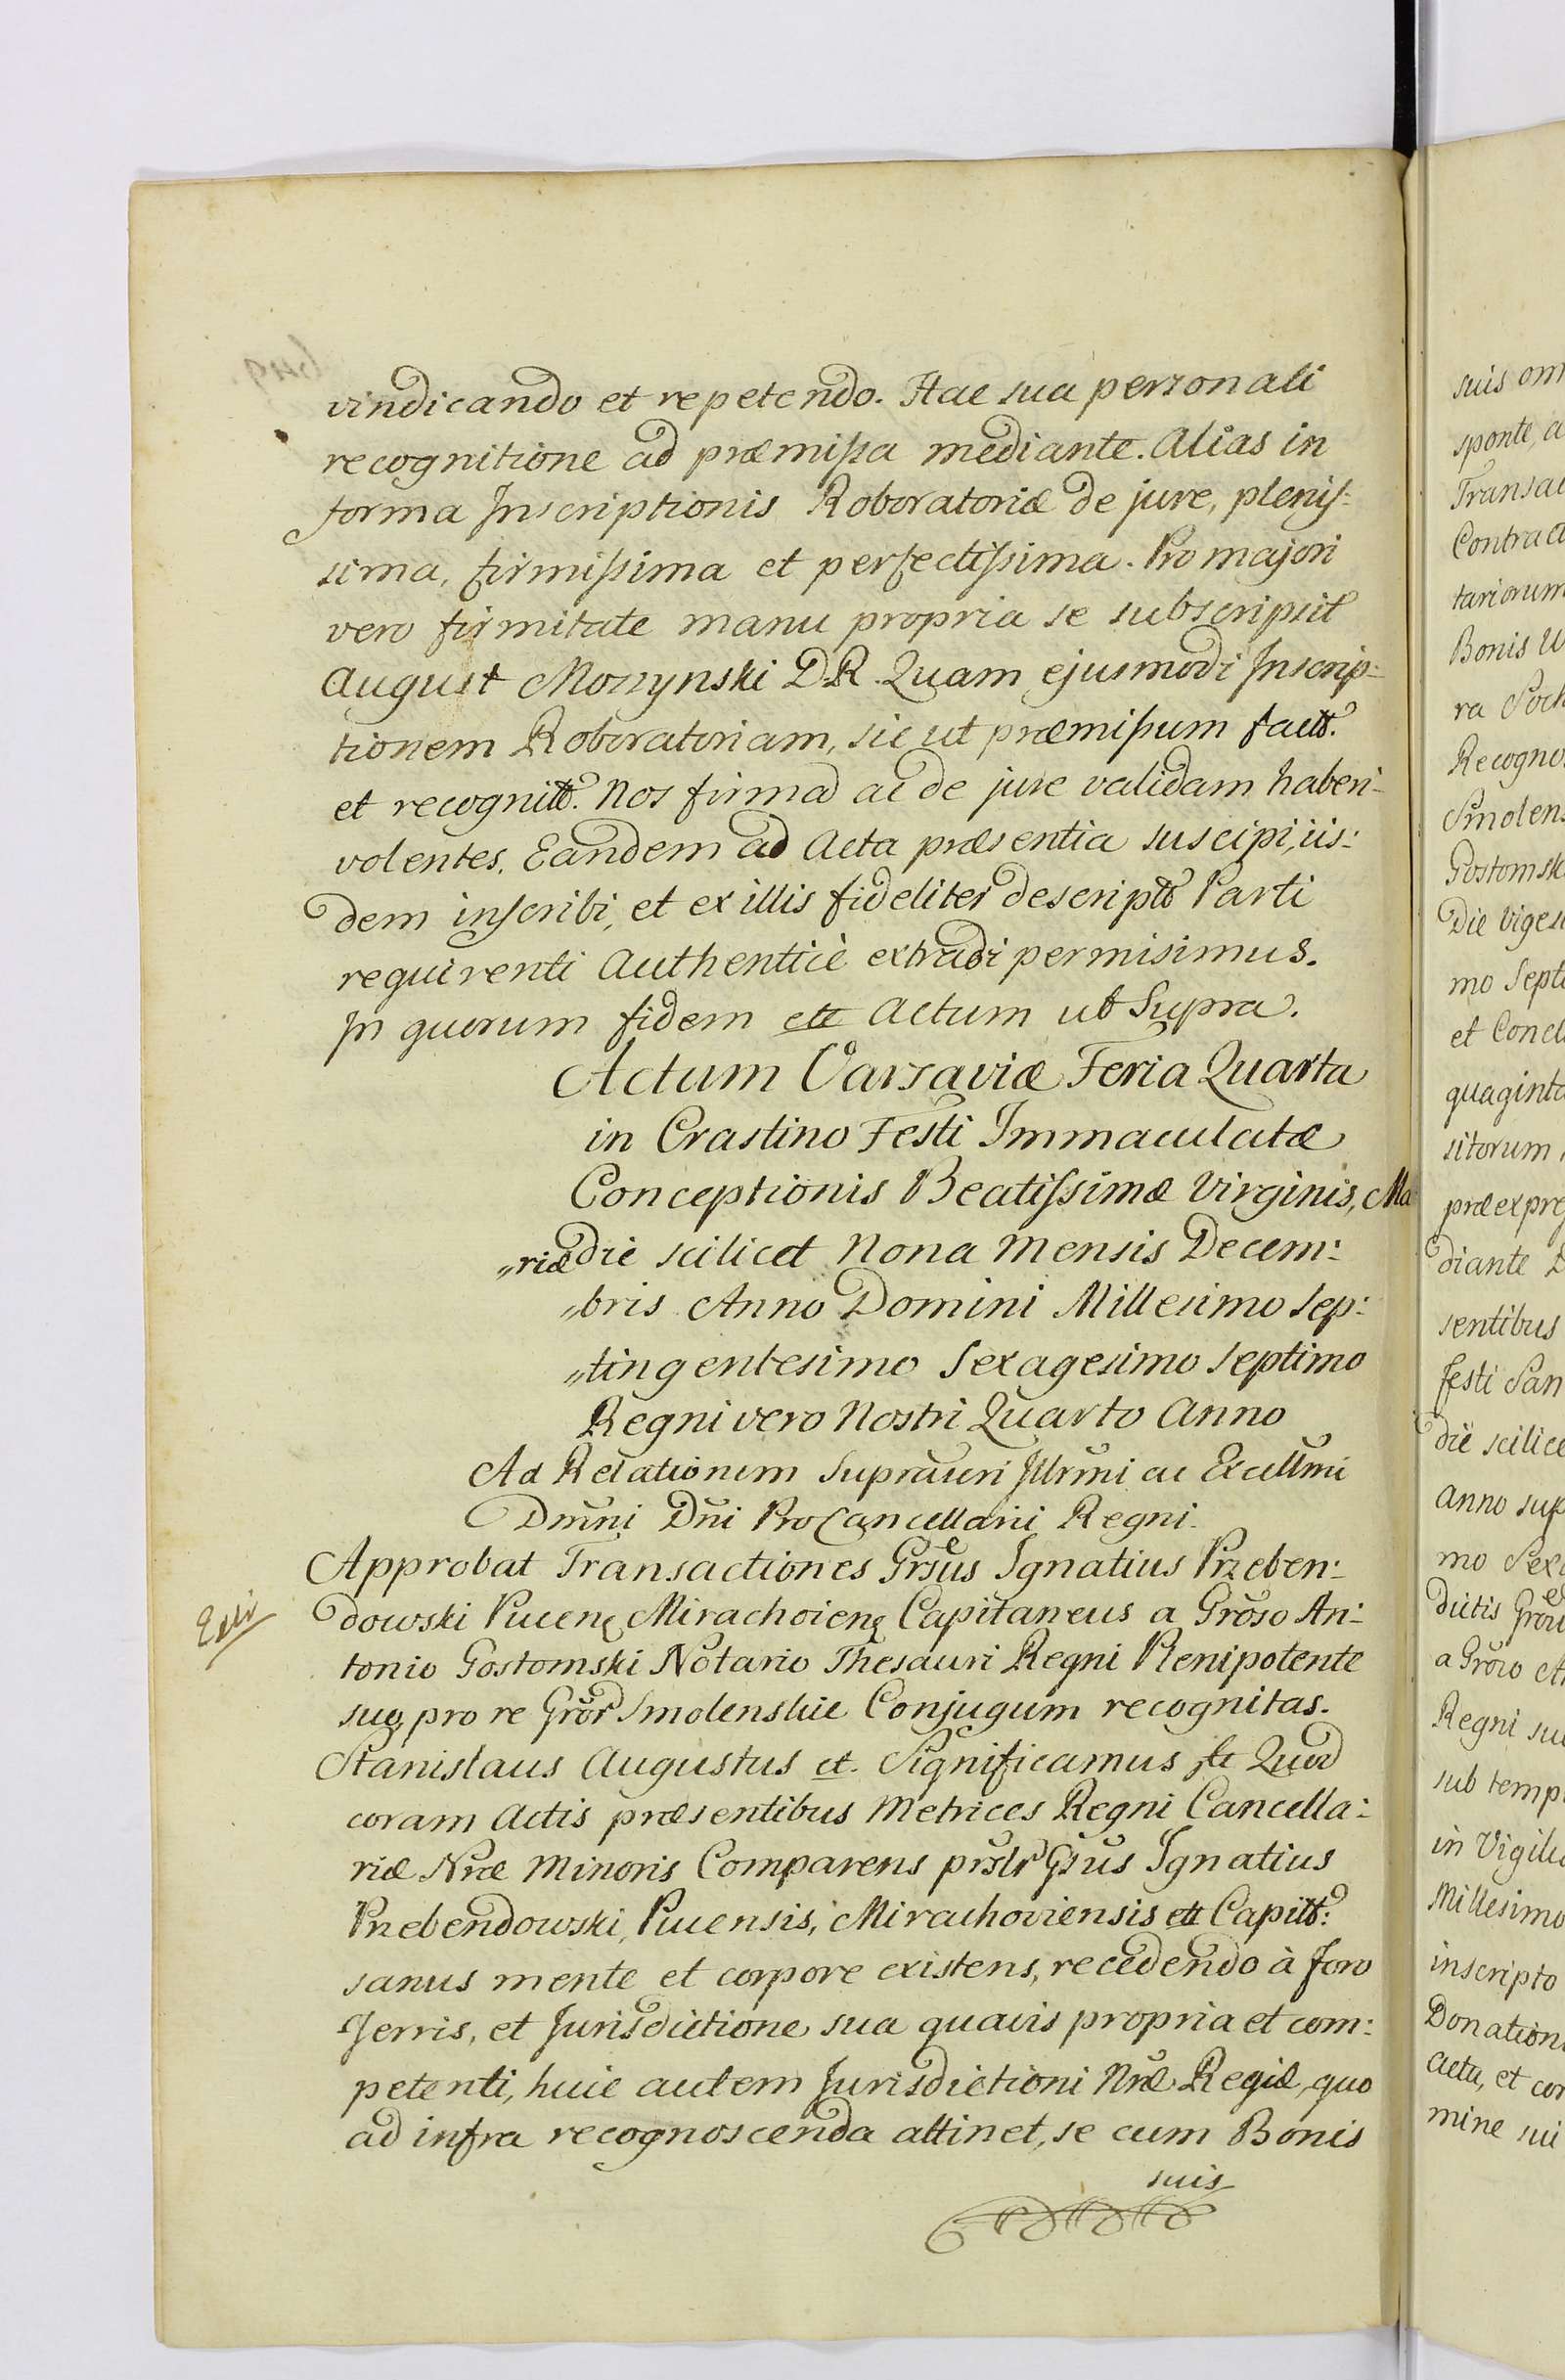 vindicando et repetendo. Hac sua personali
recognitione ad præmissa mediante. Alias in
forma Inscriptionis Roboratoriæ de jure, plenis:
sima, firmissima et perfectissima. Pro majori
vero firmitate manu propria se subscripsit
August Moszynski D.R. Quam ejusmodi Inscrip:
tionem Roboratoriam, sic ut præmissum factt.
et recognitt. Nos firmã ac de jure validam haberi
volentes. Eandem ad Acta præsentia suscipi, iis:
dem inscribi, et ex illis fideliter descriptt Parti
requirenti Authenticè extradi permisimus.
In quorum fidem ett Actum ut Supra.
Actum Varsaviæ Feria Quarta
in Crastino Festi Immaculatæ
Conceptionis Beatissimæ Virginis, Ma
„riæ die scilicet Nona Mensis Decem:
„bris Anno Domini Millesimo Sep:
„tingentesimo Sexagesimo Septimo
Regni vero Nostri Quarto Anno
Ad Relationem Illrmi ac Excllmi
Dmni Dni ProCancellarii Regni.
Approbat Transactiones Grsus Ignatius Przeben:
dowski Pucen Mirachoien Capitaneus a Groso An:
tonio Gostomski Notario Thesauri Regni Plenipotente
suo, pro re Smolenskie Conjugum recognitas.
Stanislaus Augustus et. Significamus Quod
coram Actis præsentibus Metrices Regni Cancella:
riæ Nræ Minoris Comparens prslr Gsus Ignatius
Przebendowski, Pucensis, Mirachoviensis ett Capitt:
sanus mente et corpore existens, recedendo à foro
Terris, et Jurisdictione sua quavis propria et com:
petenti, huic autem Jurisdictioni Nræ Regiæ, quo
ad infra recognoscenda attinet, se cum Bonis
suis
suis om
sponte, a
Transac
Contract
tariorum
Bonis
ra Soch
Recogno
Smolens
Gostomsk
Die Viges
mo Sept
et Concl
quaginta
sitorum
præexpre
diante
sentibus
festi San
die scilice
Anno sup
mo Sex
dictis
a Groso
Regni su
sub temp
in Vigili
Millesimo
inscripto
Donation
actu, et cor
mine sui